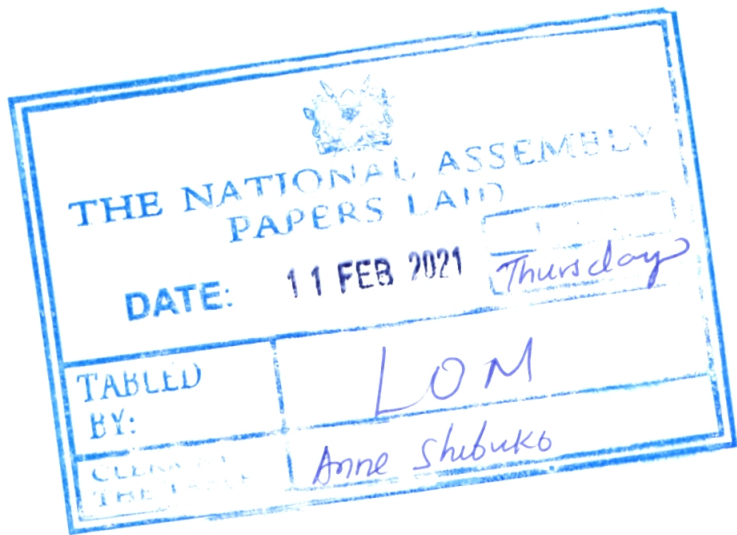 THE NATIONAL ASSEMBLY
PAPERS LAID
DATE: 11 FEB 2021 Thursday
TABLED
BY:
LOM
CLERK AT
THE TABLE
Anne Shibuko